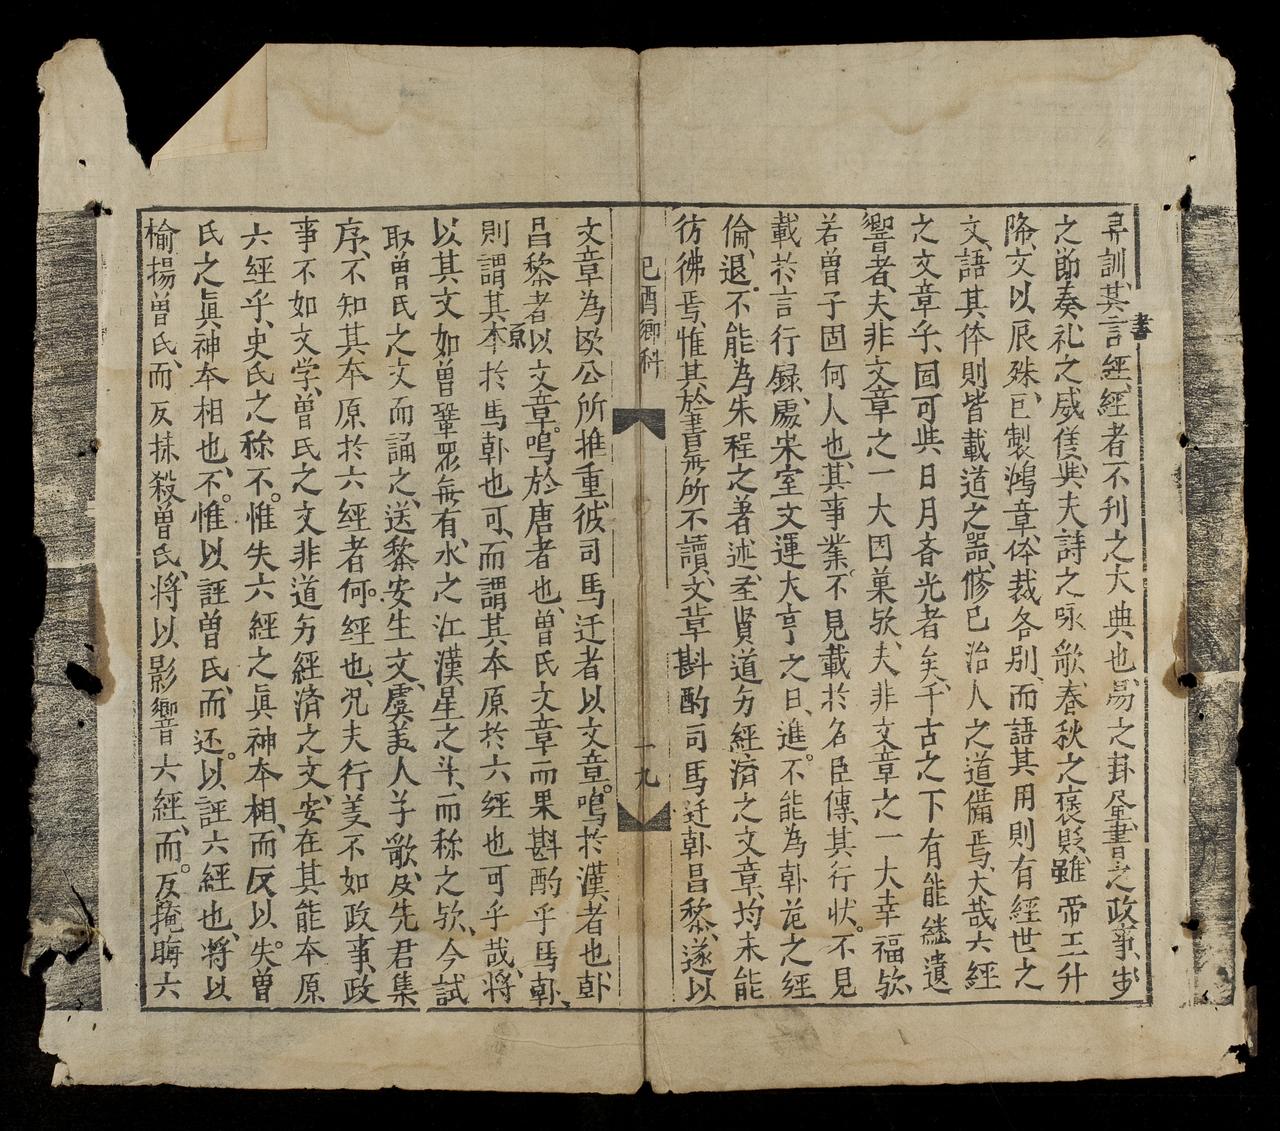 書
㝷訓、其言經、經者不刋之大典也、易之卦㕂、書之政事、步
之節奏礼之威仪㪯、夫詩之咏歌、春秋之褒貶、雖帝王升
降、文以辰殊、巨製鴻章、体裁各別、而語其用則有經世之
文、語其体則皆載道之器、修己治人之道備焉、大哉六經
之文章乎、固可與日月吝光者矣、千古之下有能继遺
響者、夫非文章之一大因菓欤、夫非文章之一大幸福欤、
若曽子固何人也、其事業不見載於名臣傳、其行狀不見
載於言行録、處宋室文運大亨之日、進不能為韩范之經
倫、退不能為朱程之著述、圣贤道𫝆經濟之文章、均未能
彷彿焉、惟其於書旡所不讀、文章斟酌司馬迁韩昌黎、遂以
己酉鄉科
一九
文章為欧公所推重、彼司馬迁者以文章鳴於漢者也、韩
昌黎者以文章鳴於唐者也、曽氏文章而果斟酌乎馬韩、
則謂其本原於馬韩也可、而謂其本原於六經也可乎哉、將
以其文如曽鞏眾無有、水之江漢星之斗、而称之欤、今試
取曽氏之文而誦之、送黎安生文、虞美人艸歌、及先君集
序、不知其本原於六經者何經也、况夫行義不如政事、政
事不如文学、曽氏之文非道𫝆經濟之文、安在其能本原
六經乎、史氏之称、不惟失六經之眞神本相、而反以失曽
氏之眞神本相也、不惟以誣曽氏、而还以誣六經也、將以
揄揚曽氏、而反抹殺曽氏、將以影響六經、而反掩晦六